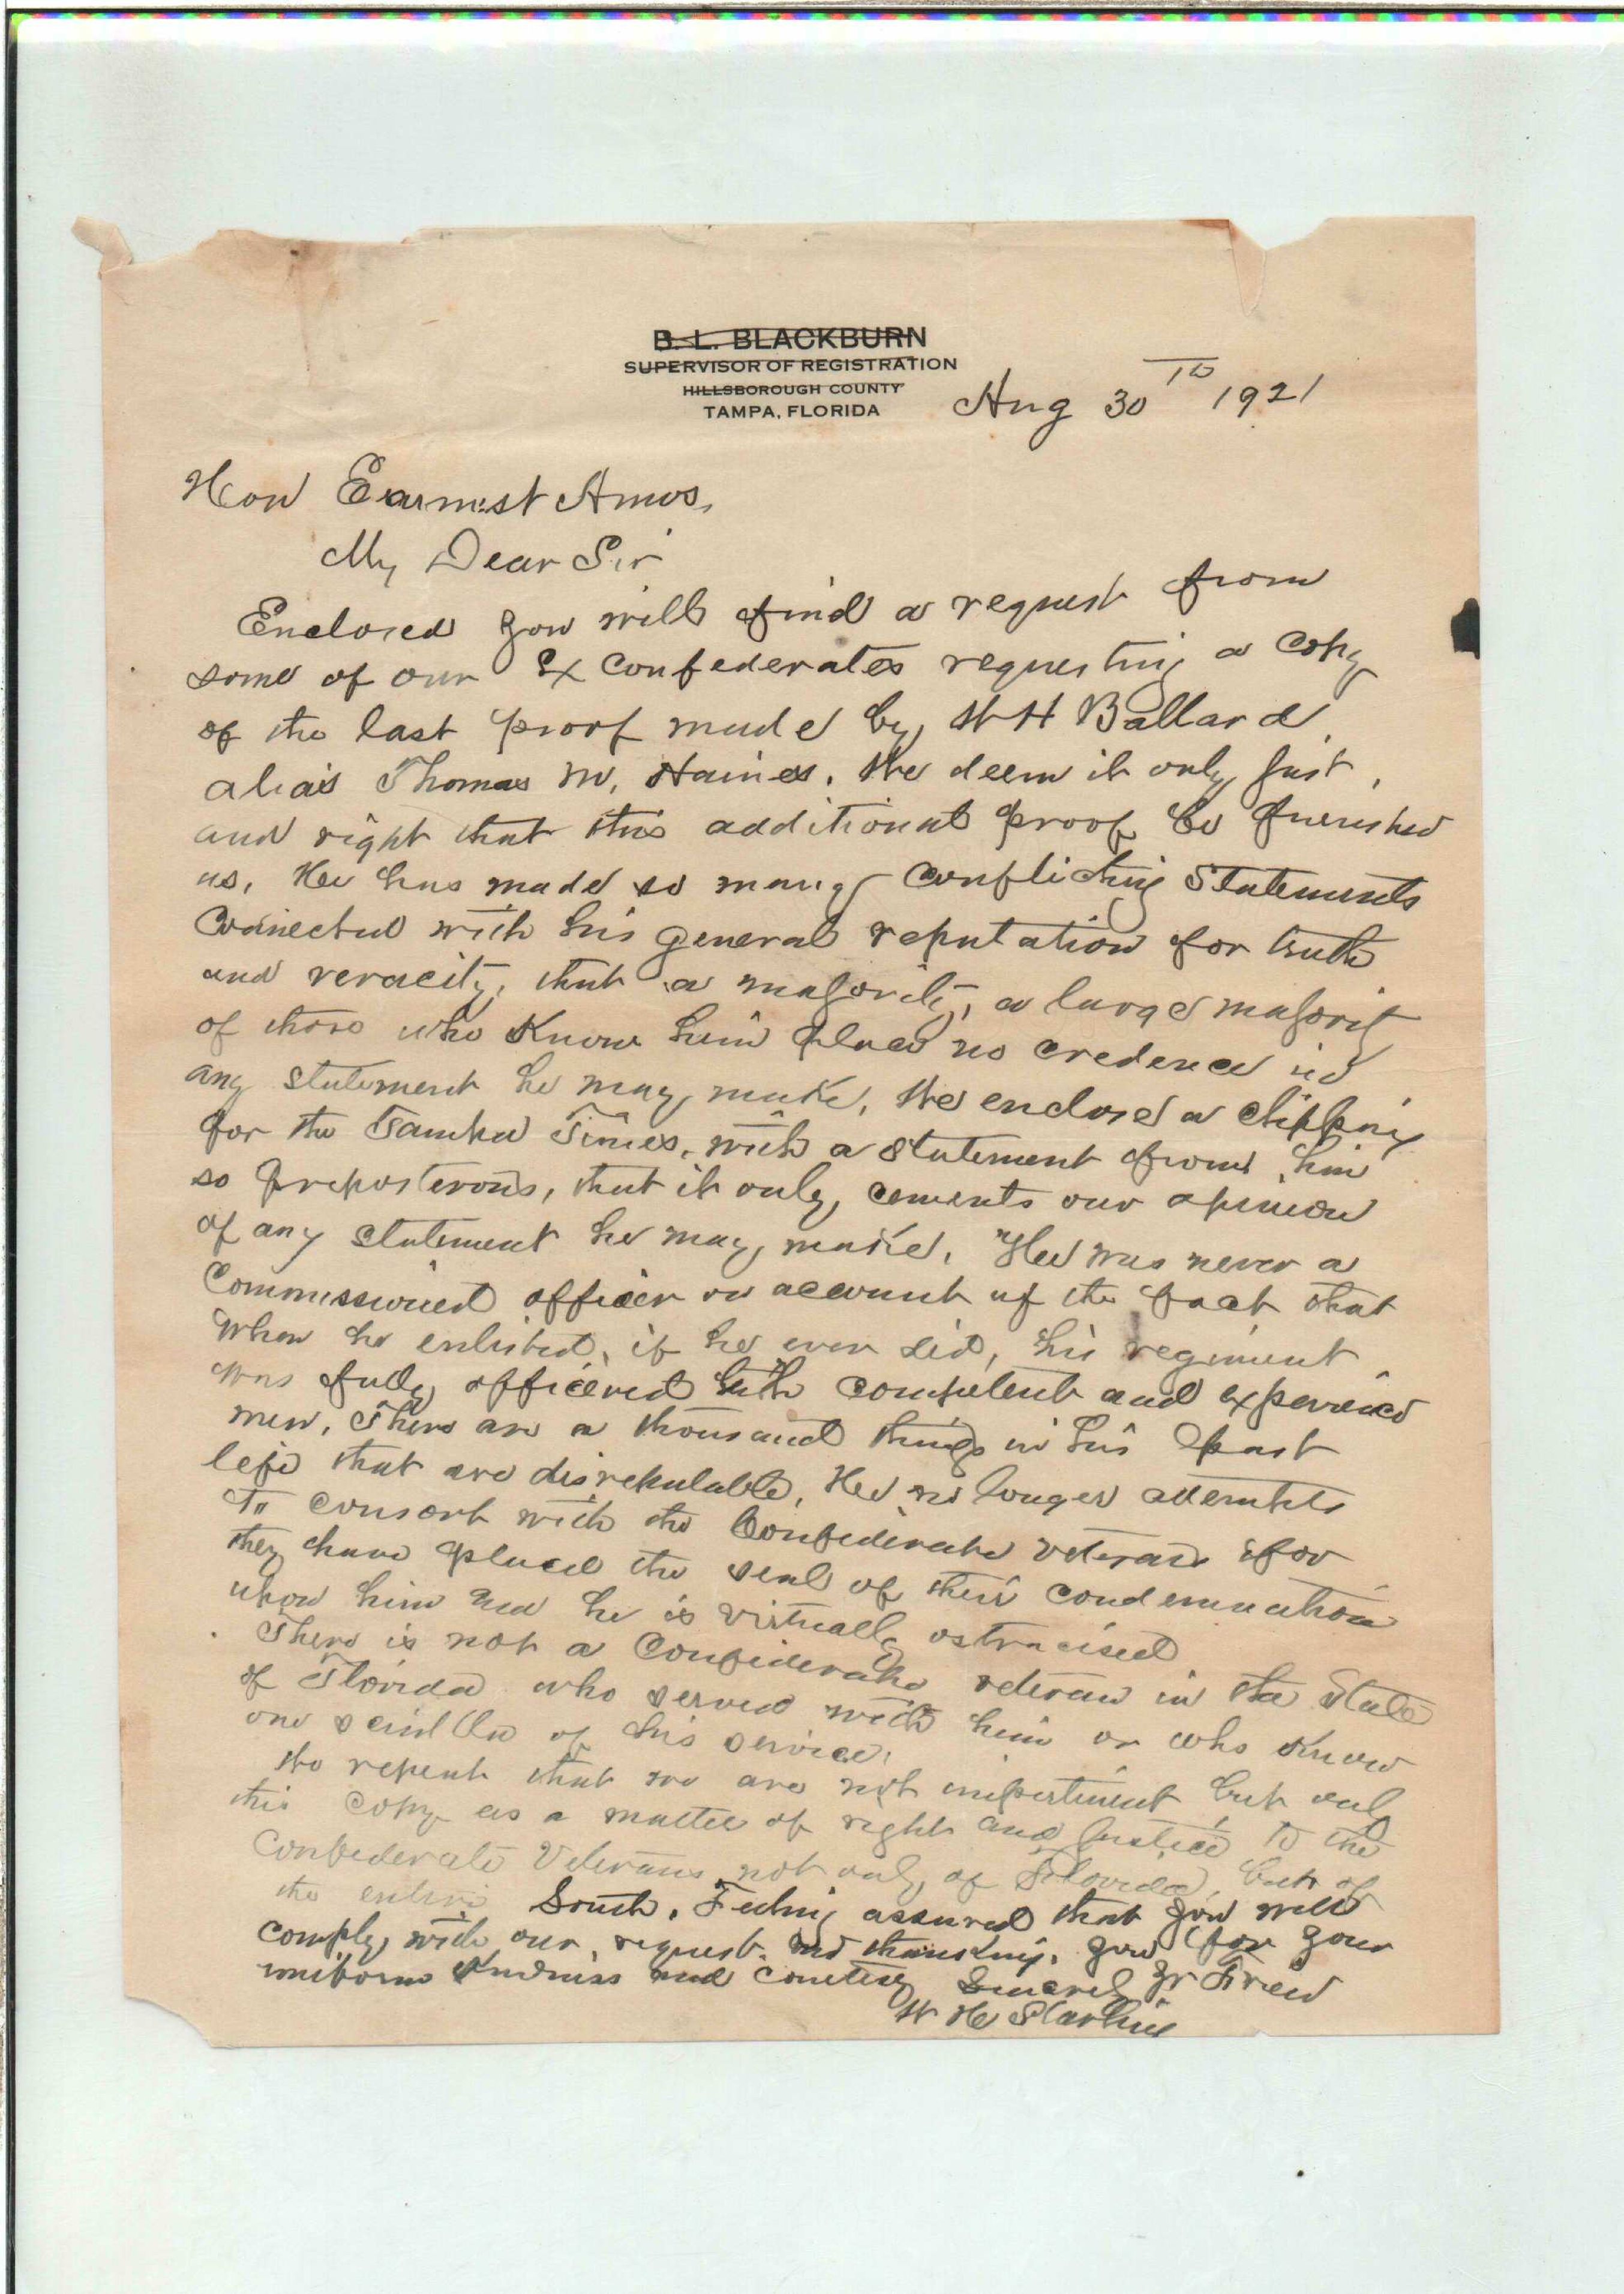 B. L. BLACKBURN
SUPERVISOR OF REGISTRATION
HILLSBOROUGH COUNTY
TAMPA, FLORIDA
Aug 30th 1921
Hon Earnest Amos,
My Dear Sir
Enclosed you will find a request from
some of our Ex Confederates requesting a copy
of the last proof made by W H Ballard,
alias Thomas M, Haines. We deem it only just,
and right that this additional proof be furnished
us. He has made so many conflicting statements
Connected with his general reputation for truth
and veracity, that a majority, a large majority
of those who know him place no credence in
any statement he may make. We enclose a clipping
for the Tampa Times, with a statement from him
so preposterous, that it only cements our opinion
of any statement he may make. He was never a
Commissioned officer on account of the fact that
when he enlisted, if he ever did, his regiment
was fully officered with competent and experienced
men. There are a thousand things in his past
life that are disreputable. He no longer attempts
to consort with the Confederate veterans for
they have placed the seal of their condemnation
upon him and he is virtually ostracised
There is not a Confederate veteran in the State
of Florida who served with him or who know
one scintilla of his service.
We repeat that we are not impertinent but only
this copy as a matter of right and justice to the
Confederate Veterans not only of Florida, but of
the entire South. Feeling assured that you will
comply with our request and thanking you for your
uniform kindness and courtesy Sincerely yr Friend
W H